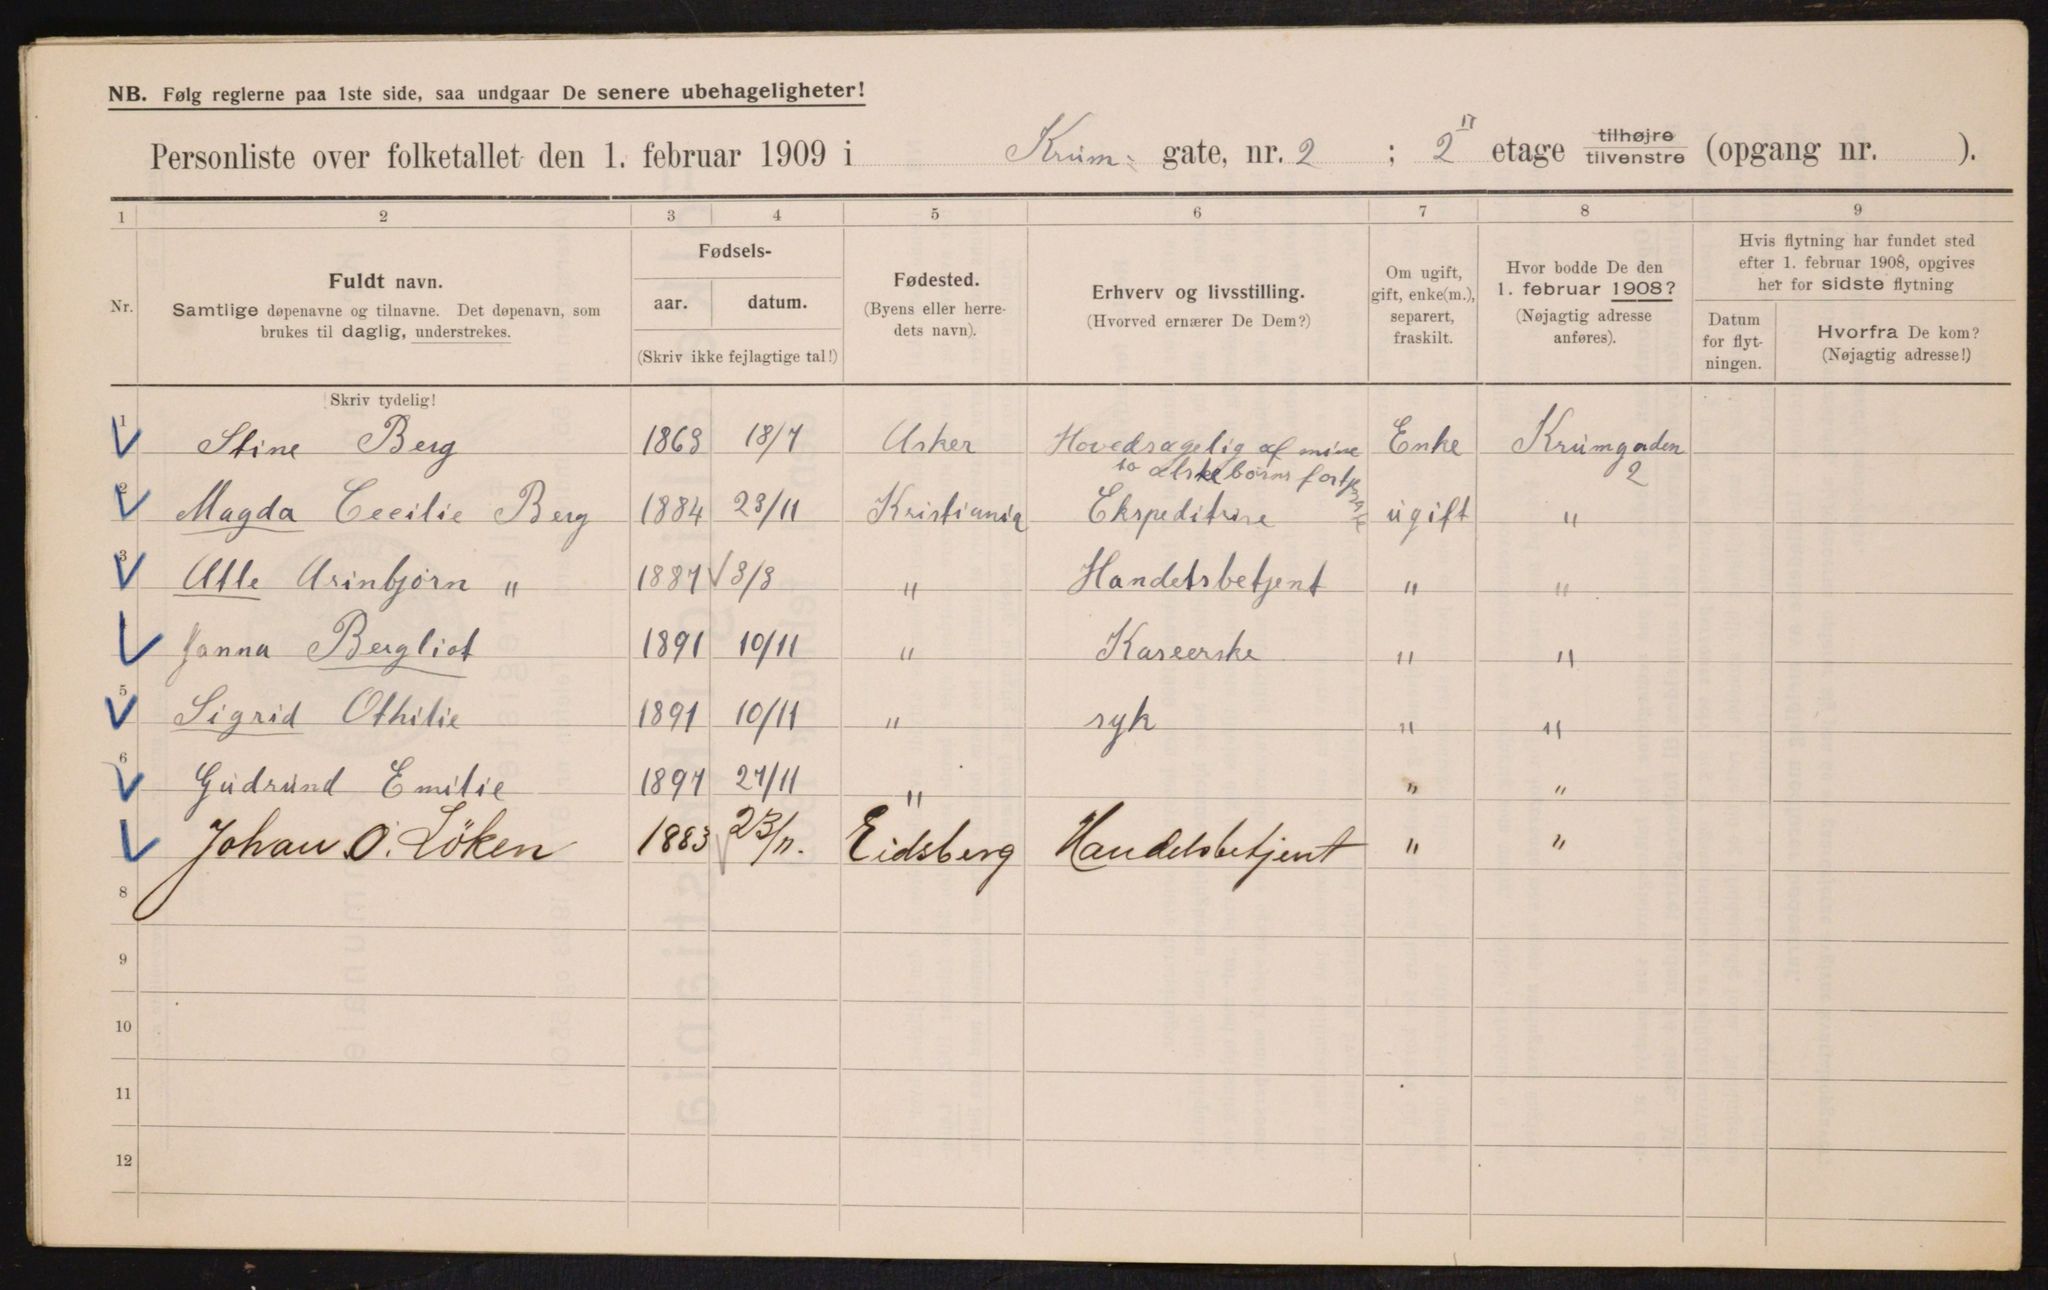 NB. Følg reglerne paa 1ste side, saa undgaar De senere ubehageligheter!
Personliste over folketallet den 1. februar 1909 i Krum- gate, nr. 2 ; 2 etage tilhøjre tilvenstre (opgang nr. ).
1 2 3 4 5 6 7 8 9
Nr. Fuldt navn. Samtlige døpenavne og tilnavne. Det døpenavn, som brukes til daglig, understrekes.
Fødsels- aar. datum. (Skriv ikke fejlagtige tal!)
Fødested. (Byens eller herredets navn).
Erhverv og livsstilling. (Hvorved ernærer De Dem?)
Om ugift, gift, enke(m.), separert, fraskilt.
Hvor bodde De den 1. februar 1908? (Nøjagtig adresse anføres).
Hvis flytning har fundet sted efter 1. februar 1908, opgives her for sidste flytning
Datum for flytningen. Hvorfra De kom? (Nøjagtig adresse!)
Skriv tydelig!
1 Stine Berg 1863 18/7 Asker Hovedsagelig af mine Enke Krumgaden 2
to ælste børns fortjeneste
2 Magda Cecilie Berg 1884 23/11 Kristiania Ekspeditrise ugift "
3 Atle Arinbjørn " 1887 3/3 " Handelsbetjent " "
Janna Bergliot 1891 10/11 " Kaseerske " "
5 Sigrid Othilie 1891 10/11 " syk " "
6 Gudrund Emilie 1897 27/11 " " "
Johan O. Löken 1883 23/11. Eidsberg Handelsbetjent " "
8
9
10
11
12